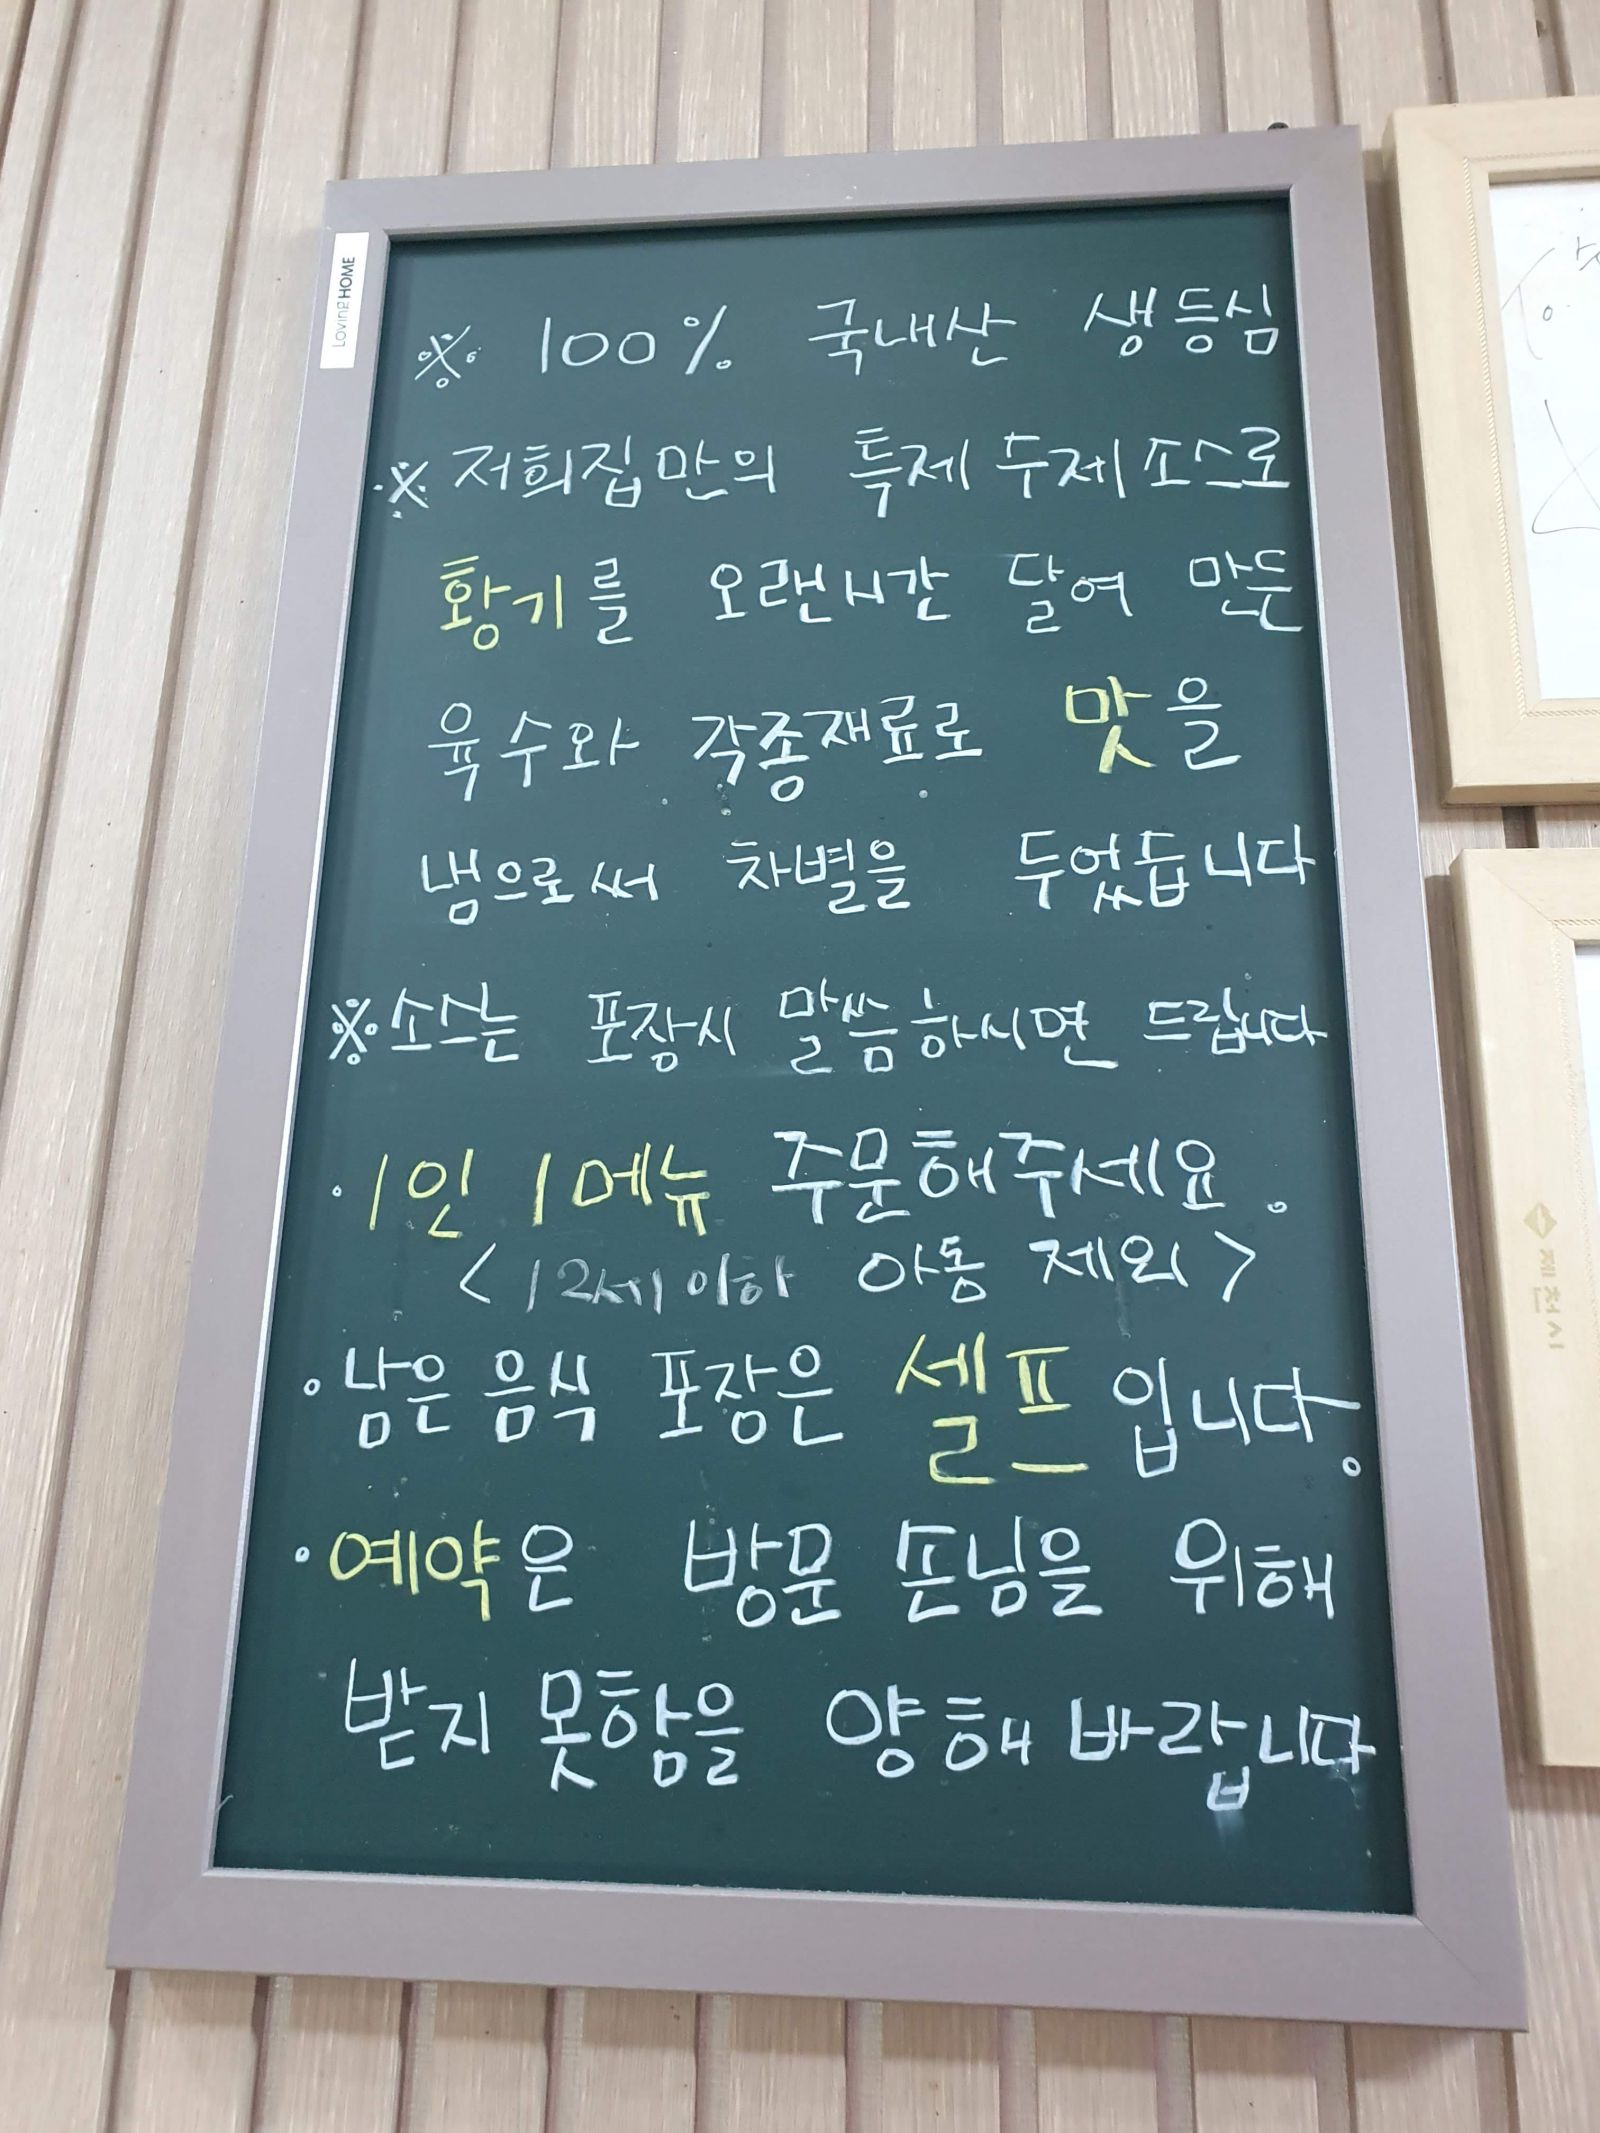 LOVING HOME
※ 100% 국내산 생등심
※ 저희집만의 특제 수제 소스로
황기를 오랜시간 달여 만든
육수와 각종재료로 맛을
냄으로써 차별을 두었듭니다
※ 소스는 포장시 말씀하시면 드립니다
· 1인 1메뉴 주문해주세요.
< 12세이하 아동 제외 >
· 남은 음식 포장은 셀프 입니다.
· 예약은 방문 손님을 위해
받지 못함을 양해 바랍니다
제천시